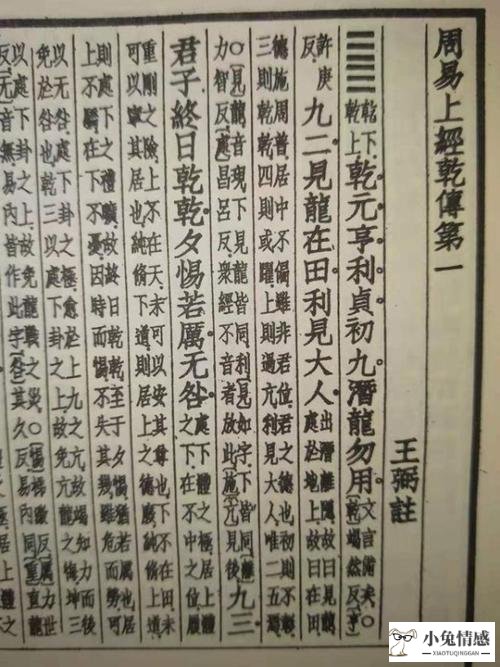 周易上經乾傳第一
王弼註
䷀乾下乾上乾元亨利貞初九潛龍勿用文言備矣○乾竭然反亨
許庚反九二見龍在田利見大人出潛離隱故曰見龍處於地上故曰在田
德施周普居中不偏雖非君位君之德也初則不彰三則乾乾四則或躍上則過亢利見大人唯二五焉
○見龍音現下見龍皆同利見如字下皆同離力智反處昌呂反衆經不音者放此施見後九三
君子終日乾乾夕惕若厲无咎處下體之極居上體之下在不中之位履
重剛之險上不在天未可以安其尊也下不在田未可以寧其居也純脩下道則居上之德廢純脩
上道則處下之禮曠故終日乾乾至于夕惕猶若厲也居上不驕在下不憂因時而惕不失其幾雖危而勞可
以无咎處下卦之極愈於上九之亢故竭知力而後免於咎也乾三
以處下卦之上故免亢龍之悔坤三以處下卦之上故免龍戰之災○惕反无音無易內皆作此字咎其久反易內同重直龍
小兔情感
XIAOTUQINGGAN